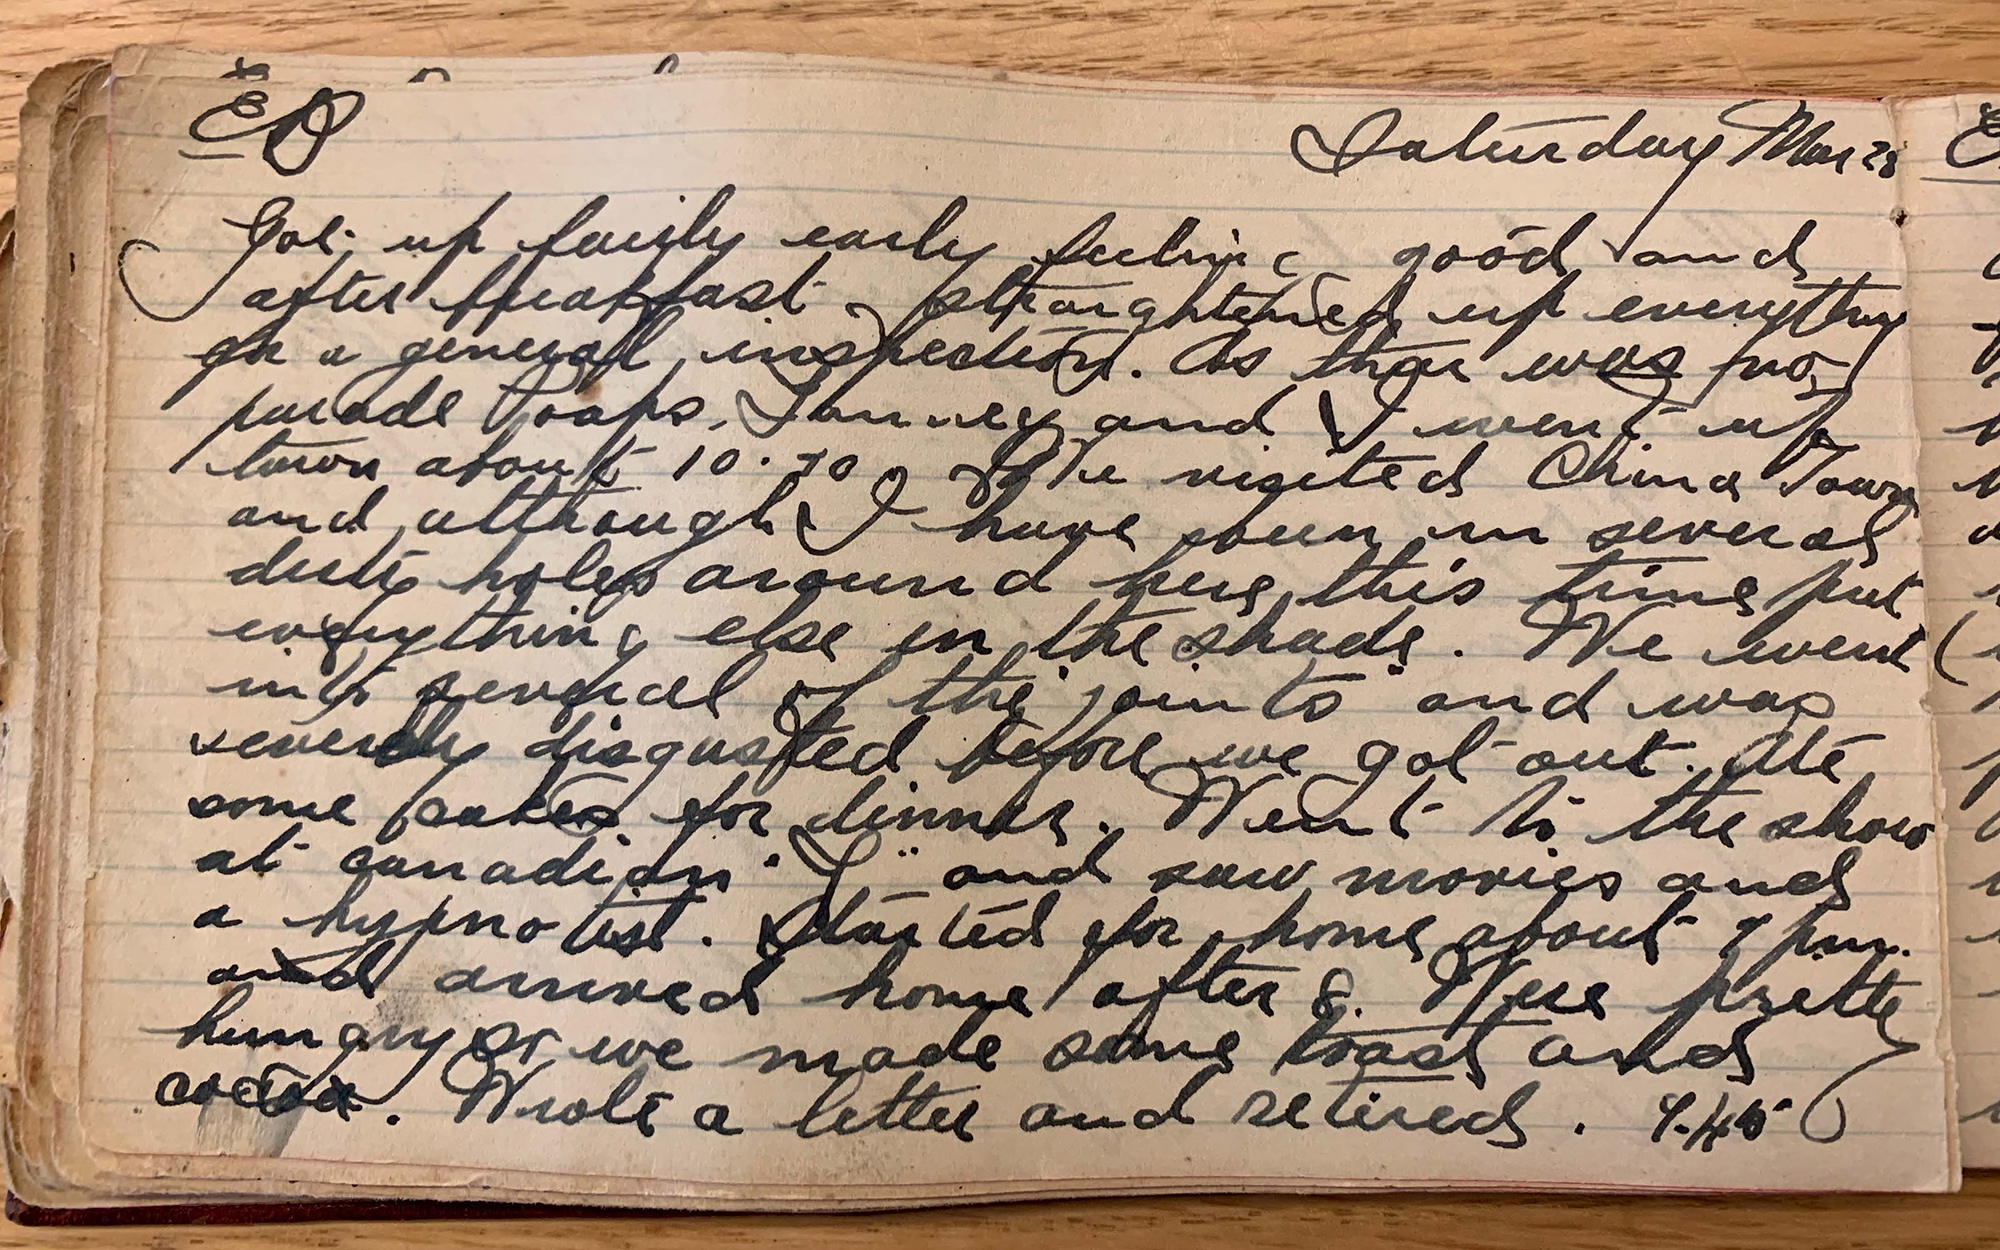 ED
Saturday Mar 23
Got up fairly early feeling good and
after breakfast straightened up everything
for a general inspection. As ther was no
parade Poaps, and I went up
town about 10.30. We visited China Town
and although I have been in several
dirty holes around here this time put
everything else in the shade. We went
into several of the "joints" and was
severely disgusted before we got out. Ate
some cakes for dinner. Went to the show
at canadian "Y" and saw movies and
a hypnotist. Started for home about 7 pm.
and arrived home after 8. Were pretty
hungry so we made some toast and
cocoa. Wrote a letter and retired. 9.45